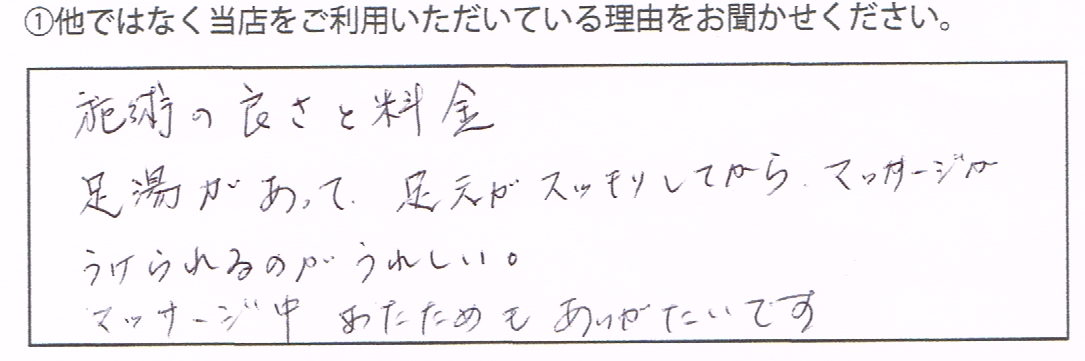 ①他ではなく当店をご利用いただいている理由をお聞かせください。
施術の良さと料金
足湯があって、足元がスッキリしてから、マッサージが
うけられるのがうれしい。
マッサージ中 おたためも ありがたいです